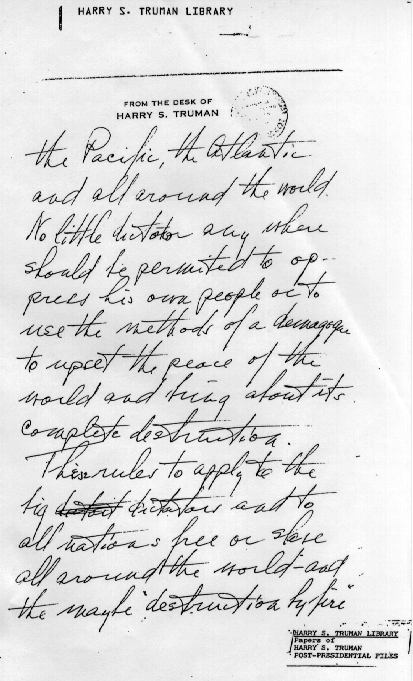 HARRY S. TRUMAN LIBRARY
FROM THE DESK OF
HARRY S. TRUMAN
the Pacific, the Atlantic
and all around the world.
No little dictator any where
should be permitted to op-
press his own people or to
use the methods of a demagogue
to upset the peace of the
world and bring about its
complete destruction.
These rules to apply to the
big dictators and to
all nations free or slave
all around the world - and
the maybe "destruction by fire"
HARRY S. TRUMAN LIBRARY
Papers of
HARRY S. TRUMAN
POST-PRESIDENTIAL FILES